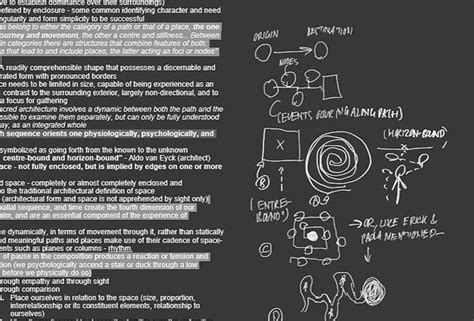 ve to establish dominance over their surroundings)
efined by enclosure - some common identifying character and need
ngularity and form simplicity to be successful
as belong to either the category of a path or that of a place, the one
ourney and movement, the other a centre and stillness... Between
in categories there are structures that combine features of both:
s that lead to and include places, the latter acting as foci or nodes"
A readily comprehensible shape that possesses a discernable and
rated form with pronounced borders
ce needs to be limited in size, capable of being experienced as an
contrast to the surrounding exterior, largely non-directional, and to
a focus for gathering
acred architecture involves a dynamic between both the path and the
ssible to examine them separately, but can only be fully understood
ay, as an integrated whole
h sequence orients one physiologically, psychologically, and
symbolized as going forth from the known to the unknown
centre-bound and horizon-bound" - Aldo van Eyck (architect)
ace - not fully enclosed, but is implied by edges on one or more
d space - completely or almost completely enclosed and
to the traditional architectural definition of space
(architectural form and space is not apprehended by sight only)
patial sequence, and time create the fourth dimension of our
alm, and are an essential component of the experience of
e dynamically, in terms of movement through it, rather than statically
d meaningful paths and places make use of their cadence of space-
ents such as planes or columns - rhythm
of pause in the composition produces a reaction or tension and
tion (we psychologically ascend a stair or duck through a low
before we physically do so)
hrough empathy and through sight
hrough comparison
Place ourselves in relation to the space (size, proportion,
interrelationship or its constituent elements, relationship to
ourselves)
ORIGIN
DESTINATION
NODES
(EVENTS OCCURING ALONG PATH)
X
(HORIZON-BOUND)
(ENTRE-
BOUND)
OR, LIKE ERIC &
PAOLA MENTIONED